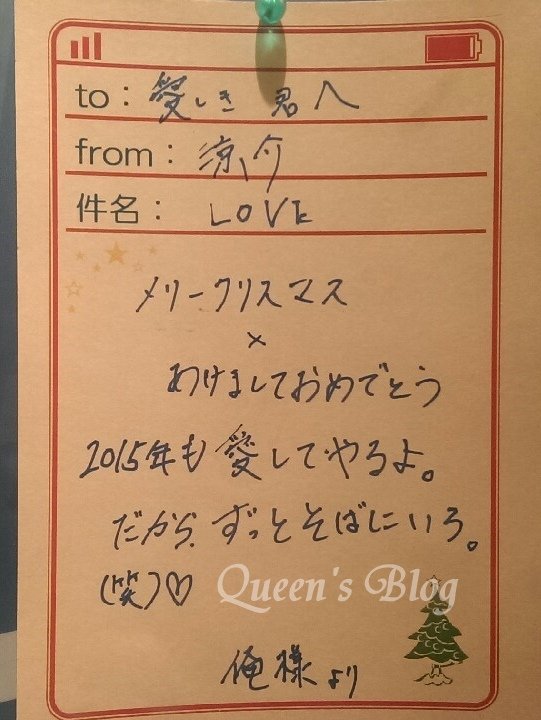 to: 愛しき 君へ
from: 涼介
件名: LOVE
メリークリスマス
×
あけましておめでとう
2015年も愛してやるよ。
だから、ずっとそばにいろ。
(笑)♡
Queen's Blog
俺様より